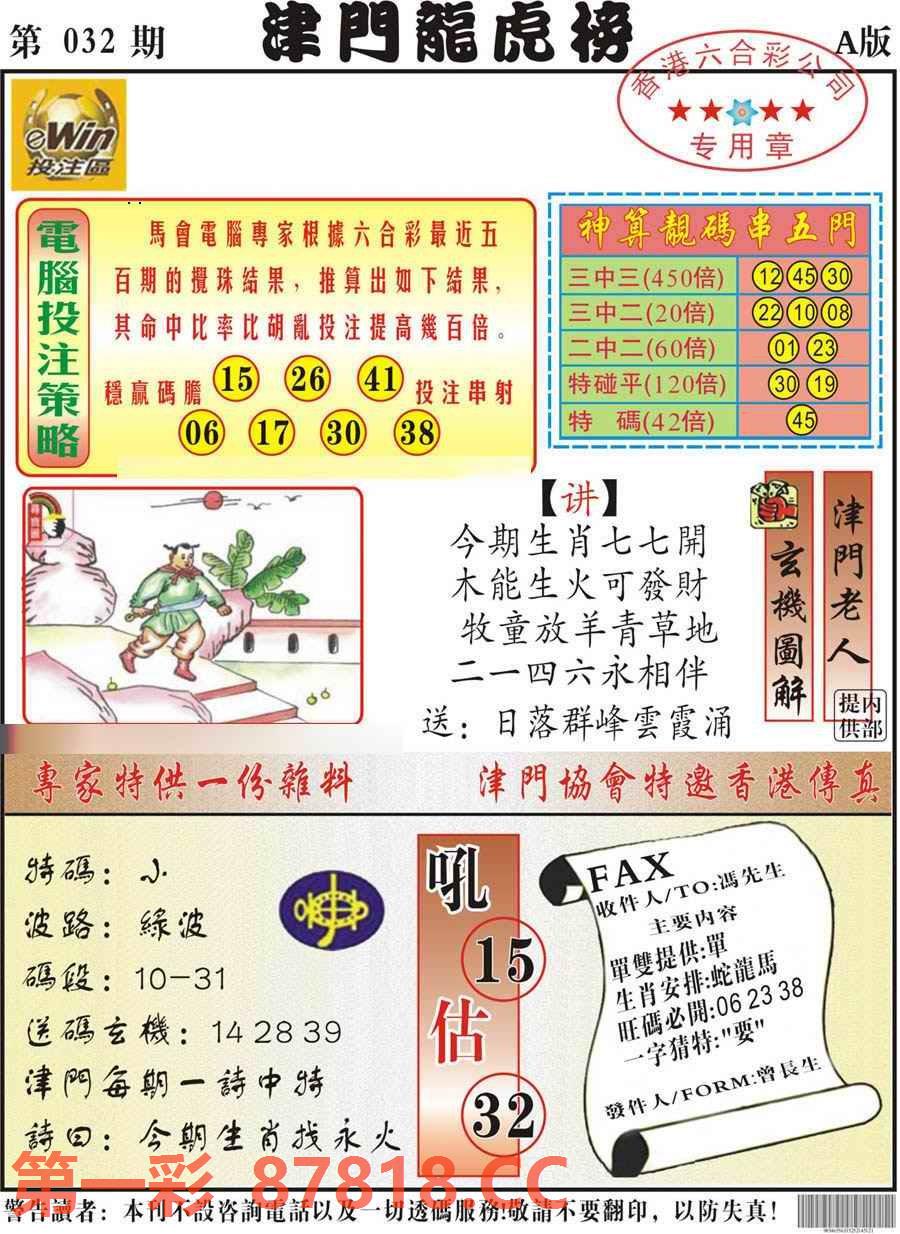 第 032 期
津門龍虎榜
A版
香港六合彩公司
专用章
eWin
投注區
電腦投注策略
馬會電腦專家根據六合彩最近五
百期的攪珠結果，推算出如下結果，
其命中比率比胡亂投注提高幾百倍。
穩贏碼膽 15 26 41 投注串射
06 17 30 38
神算靚碼串五門
三中三(450倍) 12 45 30
三中二(20倍) 22 10 08
二中二(60倍) 01 23
特碰平(120倍) 30 19
特 碼(42倍) 45
【讲】
今期生肖七七開
木能生火可發財
牧童放羊青草地
二一四六永相伴
送：日落群峰雲霞涌
玄機圖解
津門老人
提供
内部
專家特供一份雜料
津門協會特邀香港傳真
特碼：小
波路：綠波
碼段：10-31
送碼玄機：14 28 39
津門每期一詩中特
詩曰：今期生肖找永火
吼
15
估
32
FAX
收件人/TO:馮先生
主要内容
單雙提供:單
生肖安排:蛇龍馬
旺碼必開:06 23 38
一字猜特:"要"
發件人/FORM:曾長生
第一彩 87818.CC
警告讀者：本刊不設咨詢電話以及一切透碼服務!敬請不要翻印，以防失真!